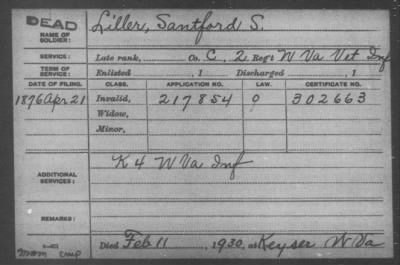 DEAD
NAME OF SOLDIER: Liller, Santford S.
SERVICE: Late rank, Co. C, 2 Reg't W Va Vet Inf
TERM OF SERVICE: Enlisted , 1 Discharged , 1
DATE OF FILING. CLASS. APPLICATION NO. LAW. CERTIFICATE NO.
1876 Apr 21 Invalid, 217854 302663
Widow,
Minor,
ADDITIONAL SERVICES: K 4 W Va Inf
REMARKS:
Died Feb 11, 1930, at Keyser W Va